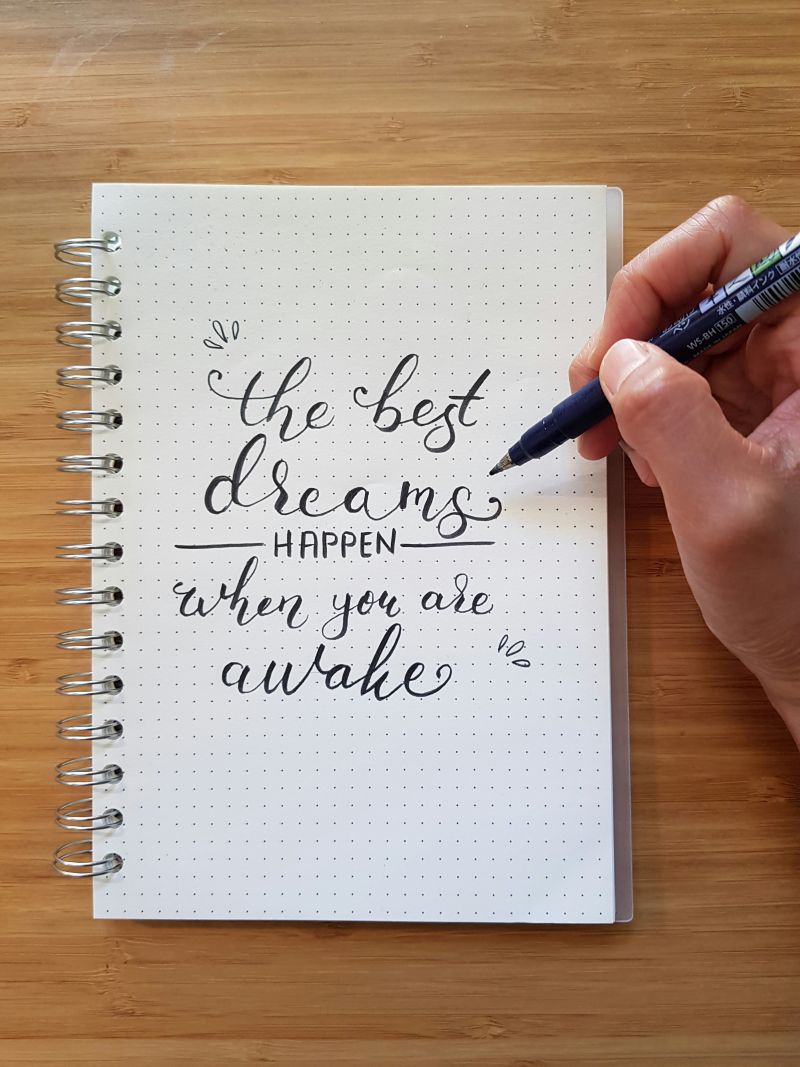 the best
dreams
HAPPEN
when you are
awake
水性・顔料インク
WS-BH 150